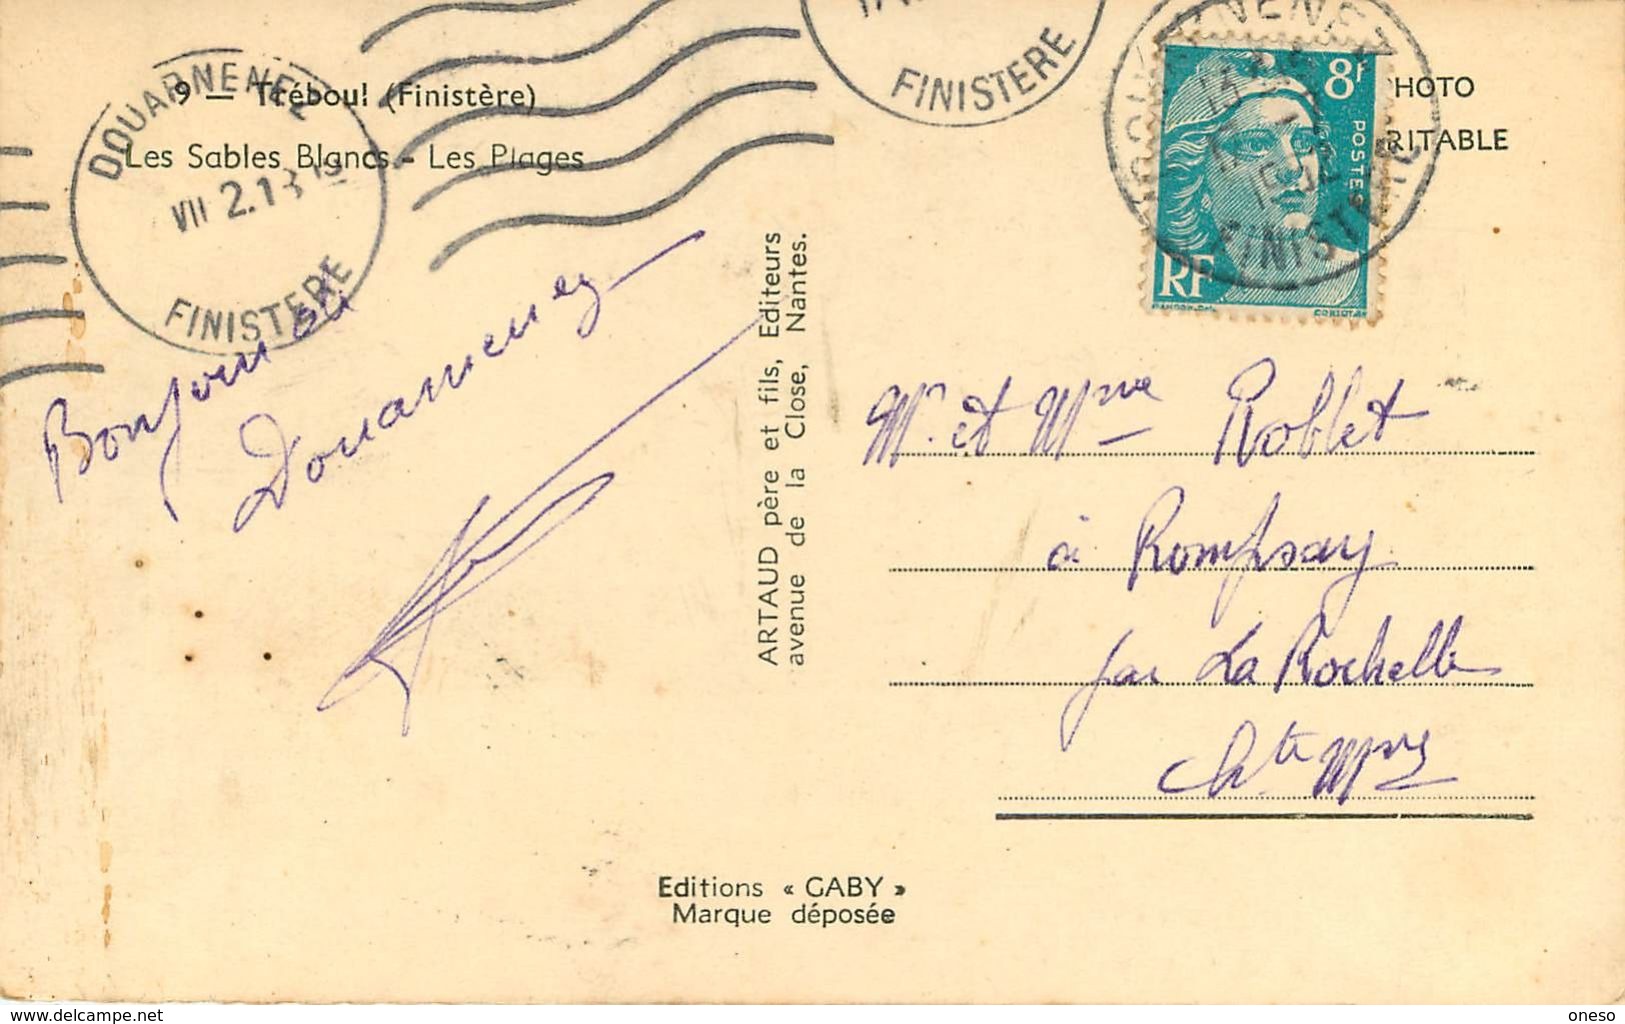 9 — Tréboul (Finistère)
Les Sables Blancs - Les Plages
DOUARNENEZ
VII 2.1
FINISTERE
FINISTERE
DOUARNENEZ
FINISTERE
8F
POSTES
RF
PHOTO
VERITABLE
Bonjour de
Douarnenez
ARTAUD père et fils, Editeurs
avenue de la Close, Nantes.
Mr. et Mme Roblet
à Rompsay
par La Rochelle
Chte Mme
Editions « GABY »
Marque déposée
www.delcampe.net
oneso